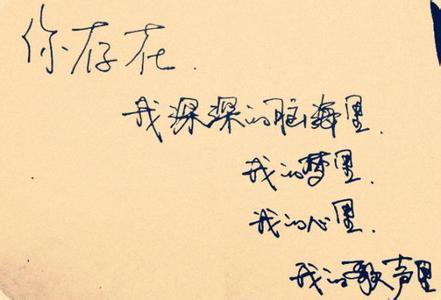 你存在.
我深深的脑海里.
我的梦里.
我的心里.
我的歌声里